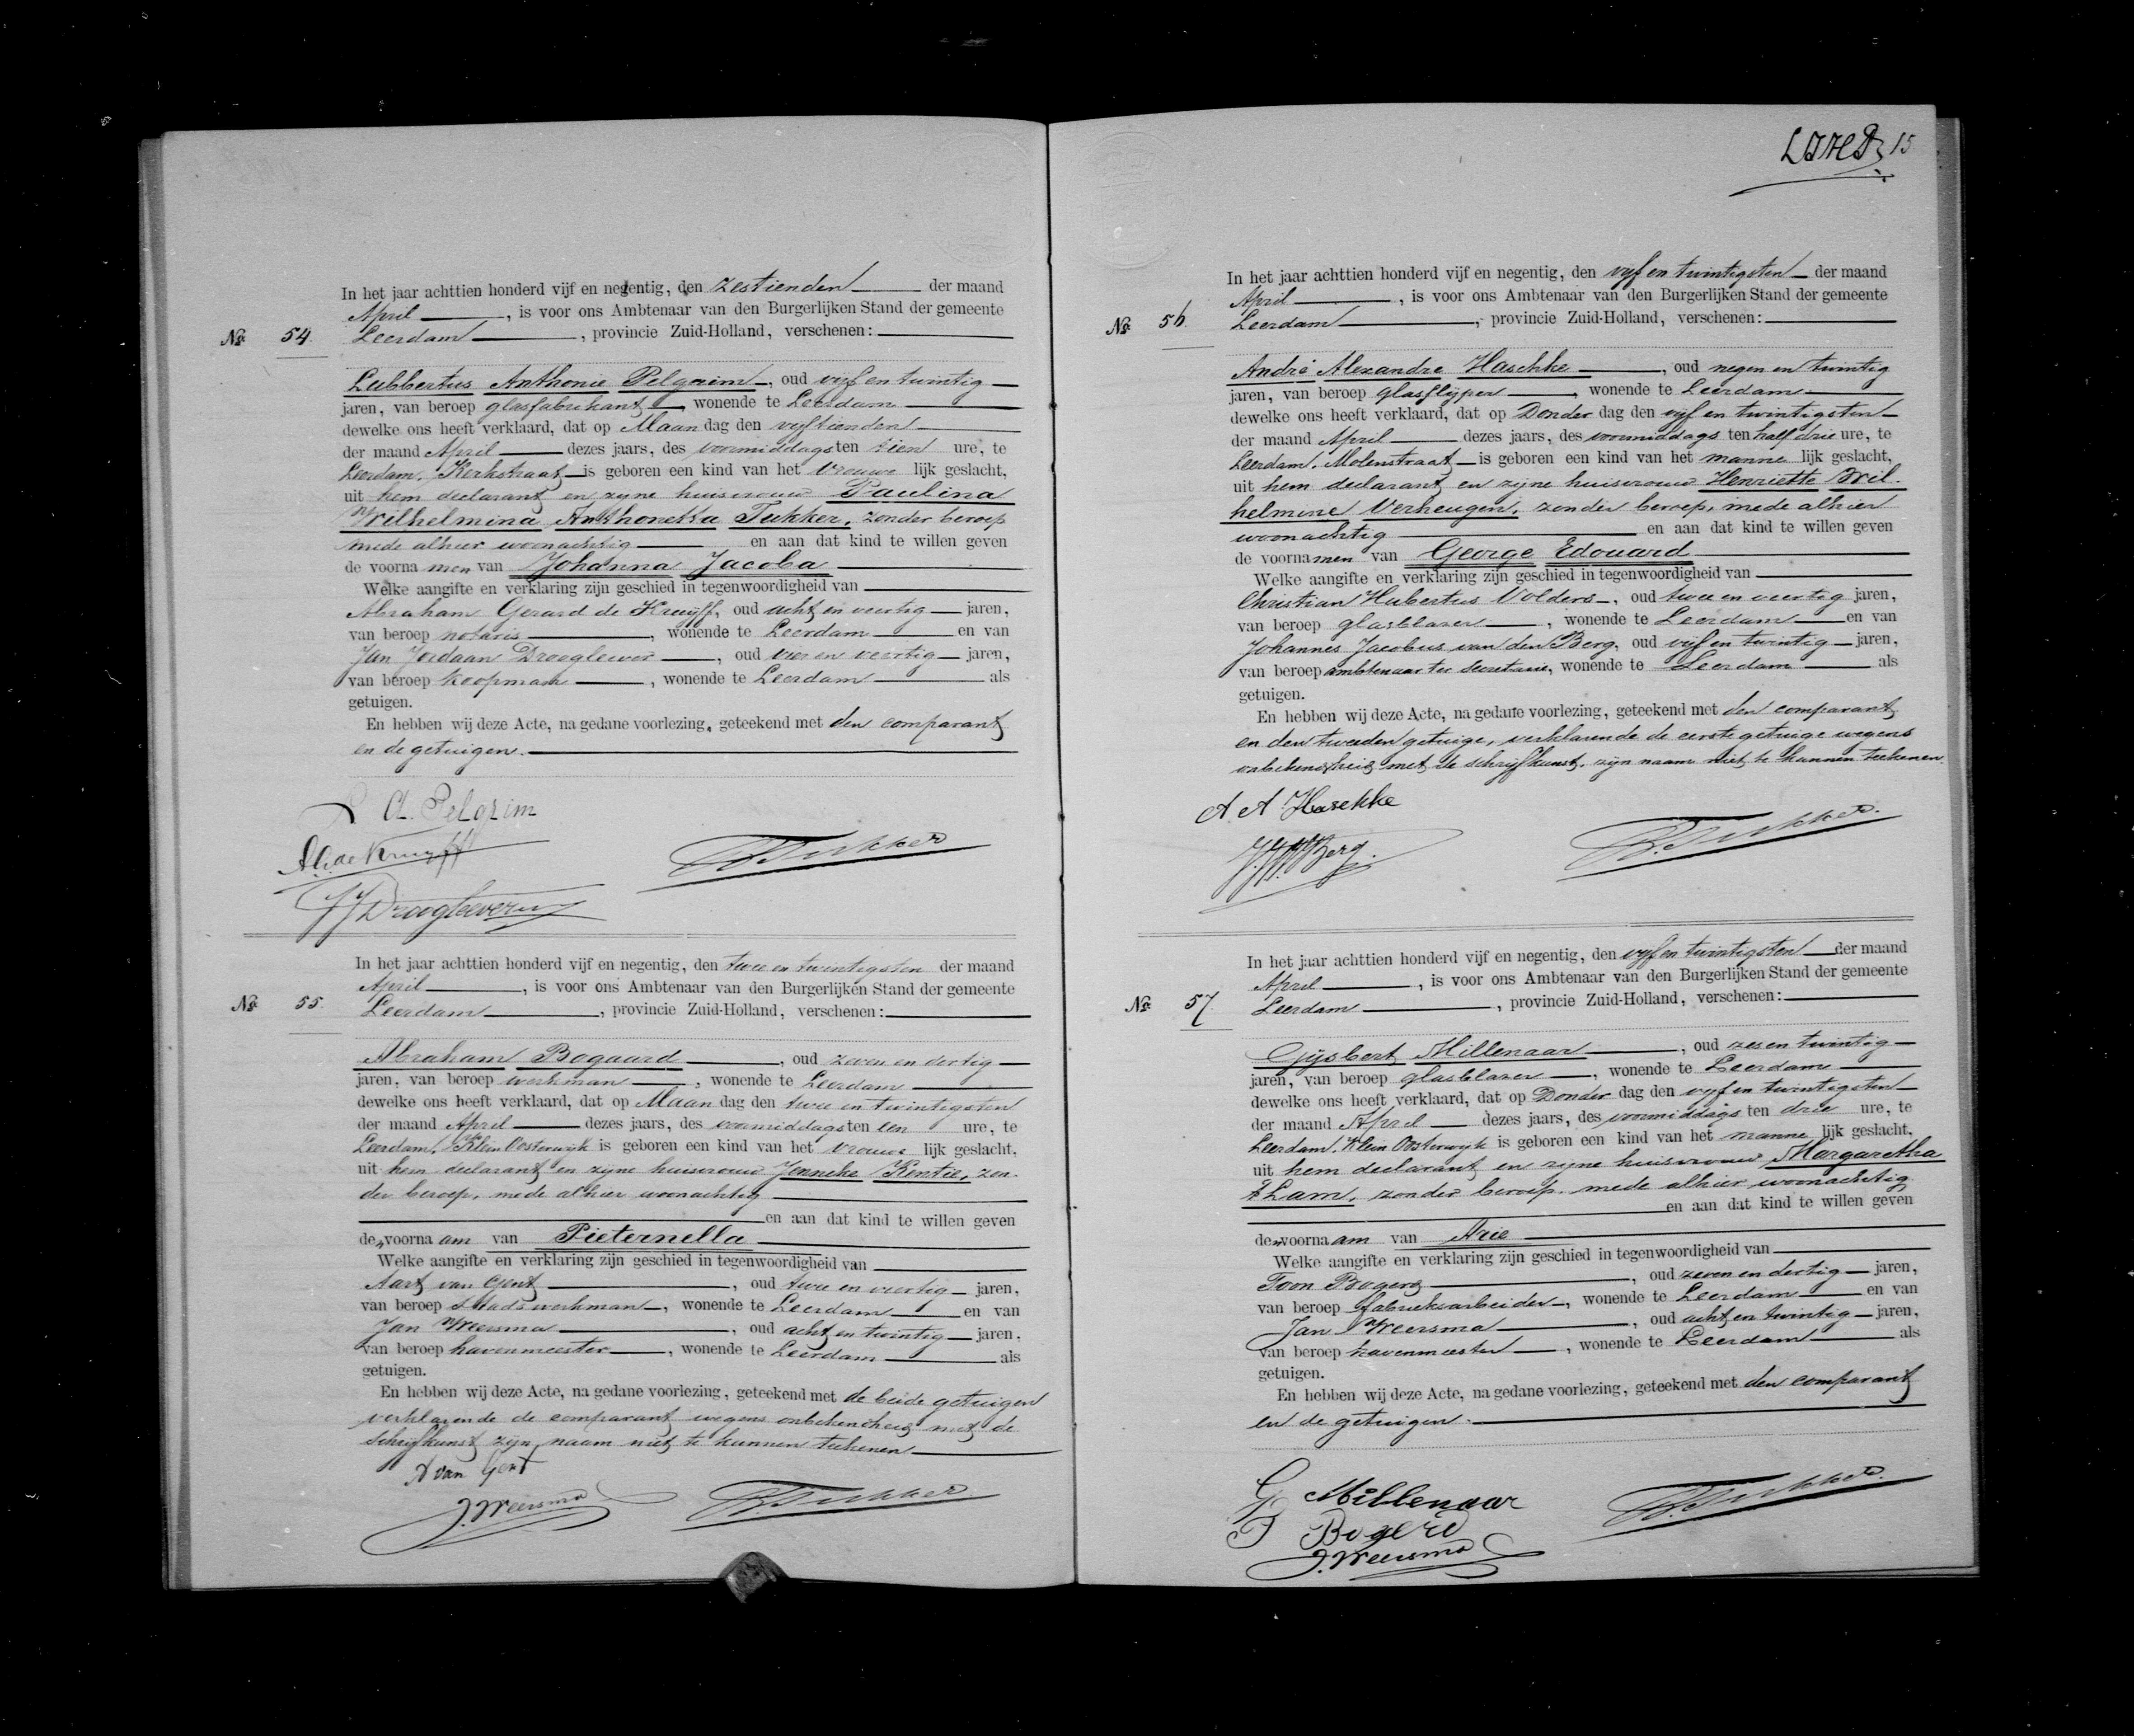 15
In het jaar achttien honderd vijf en negentig, den zestienden der maand
April, is voor ons Ambtenaar van den Burgerlijken Stand der gemeente
No. 54. Leerdam, provincie Zuid-Holland, verschenen:
Lubbertus Anthonie Pelgrim, oud vijf en twintig
jaren, van beroep glasfabrikant, wonende te Leerdam
dewelke ons heeft verklaard, dat op Maan dag den vijftienden
der maand April dezes jaars, des voormiddags ten tien ure, te
Leerdam, Kerkstraat is geboren een kind van het vrouwe lijk geslacht,
uit hem declarant en zijne huisvrouw Paulina
Wilhelmina Anthonetta Tukker, zonder beroep
mede alhier woonachtig en aan dat kind te willen geven
de voorna men van Johanna Jacoba
Welke aangifte en verklaring zijn geschied in tegenwoordigheid van
Abraham Gerard de Kruyff, oud acht en veertig jaren,
van beroep notaris, wonende te Leerdam en van
Jan Jordaan Droogleever, oud vier en veertig jaren,
van beroep koopman, wonende te Leerdam als
getuigen.
En hebben wij deze Acte, na gedane voorlezing, geteekend met den comparant
en de getuigen.
L A. Pelgrim
A.G. de Kruyff
JJ Droogleever
Tukker
In het jaar achttien honderd vijf en negentig, den twee en twintigsten der maand
April, is voor ons Ambtenaar van den Burgerlijken Stand der gemeente
No. 55. Leerdam, provincie Zuid-Holland, verschenen:
Abraham Bogaard, oud zeven en dertig
jaren, van beroep werkman, wonende te Leerdam
dewelke ons heeft verklaard, dat op Maan dag den twee en twintigsten
der maand April dezes jaars, des voormiddags ten een ure, te
Leerdam, Klein Oosterwijk is geboren een kind van het vrouwe lijk geslacht,
uit hem declarant en zijne huisvrouw Jenneke Kentie, zon
der beroep, mede alhier woonachtig
en aan dat kind te willen geven
den voorna am van Pieternella
Welke aangifte en verklaring zijn geschied in tegenwoordigheid van
Aart van Gent, oud twee en veertig jaren,
van beroep stadswerkman, wonende te Leerdam en van
Jan Weersma, oud acht en twintig jaren,
van beroep havenmeester, wonende te Leerdam als
getuigen.
En hebben wij deze Acte, na gedane voorlezing, geteekend met de beide getuigen
verklarende de comparant wegens onbekendheid met de
schrijfkunst zijn naam niet te kunnen teekenen
A van Gent
J. Weersma
Tukker
In het jaar achttien honderd vijf en negentig, den vijf en twintigsten der maand
April, is voor ons Ambtenaar van den Burgerlijken Stand der gemeente
No. 56. Leerdam, provincie Zuid-Holland, verschenen:
André Alexandre Haschke, oud negen en twintig
jaren, van beroep glasslijper, wonende te Leerdam
dewelke ons heeft verklaard, dat op Donder dag den vijf en twintigsten
der maand April dezes jaars, des voormiddags ten half drie ure, te
Leerdam, Molenstraat is geboren een kind van het manne lijk geslacht,
uit hem declarant en zijne huisvrouw Henriette Wil-
helmine Verheugen, zonder beroep, mede alhier
woonachtig en aan dat kind te willen geven
de voornamen van George Edouard
Welke aangifte en verklaring zijn geschied in tegenwoordigheid van
Christian Hubertus Volders, oud twee en veertig jaren,
van beroep glasblazer, wonende te Leerdam en van
Johannes Jacobus van den Berg, oud vijf en twintig jaren,
van beroep ambtenaar ter secretarie, wonende te Leerdam als
getuigen.
En hebben wij deze Acte, na gedane voorlezing, geteekend met den comparant
en den tweeden getuige, verklarende de eerste getuige wegens
onbekendheid met de schrijfkunst, zijn naam niet te kunnen teekenen.
A A Haschke
Berg.
Tukker.
In het jaar achttien honderd vijf en negentig, den vijf en twintigsten der maand
April, is voor ons Ambtenaar van den Burgerlijken Stand der gemeente
No. 57. Leerdam, provincie Zuid-Holland, verschenen:
Gijsbert Millenaar, oud zes en twintig
jaren, van beroep glasblazer, wonende te Leerdam
dewelke ons heeft verklaard, dat op Donder dag den vijf en twintigsten
der maand April dezes jaars, des voormiddags ten drie ure, te
Leerdam, Klein Oosterwijk is geboren een kind van het manne lijk geslacht,
uit hem declarant en zijne huisvrouw Margaretha
't Lam, zonder beroep, mede alhier woonachtig
en aan dat kind te willen geven
den voorna am van Arie
Welke aangifte en verklaring zijn geschied in tegenwoordigheid van
Toon Bogerd, oud zeven en dertig jaren,
van beroep fabrieksarbeider, wonende te Leerdam en van
Jan Weersma, oud acht en twintig jaren,
van beroep havenmeester, wonende te Leerdam als
getuigen.
En hebben wij deze Acte, na gedane voorlezing, geteekend met den comparant
en de getuigen.
G Millenaar
T Bogerd
J. Weersma
Tukker.